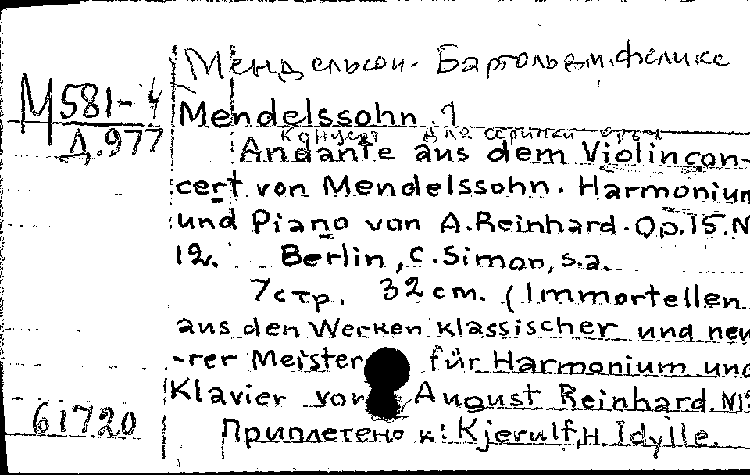 Мендельсон-Бартольди, Феликс
М581-4
Д.977
Mendelssohn
Концерт для скрипки
Andante aus dem Violincon-
cert von Mendelssohn. Harmonium
und Piano von A. Reinhard. Op. 15. N
12. Berlin, C. Simon, s.a.
7 стр. 32 cm. (Immortellen
aus den Werken klassischer und neu
-rer Meister für Harmonium und
Klavier von August Reinhard. N12
Приплетено к: Kjerulf, H. Idylle.
61720